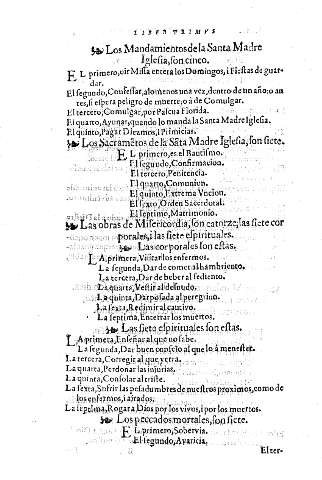 LIBER PRIMVS
Los Mandamientos de la Santa Madre
Iglesia, son cinco.
EL primero, oir Missa entera los Domingos, i Fiestas de guar-
dar.
El segundo, Confessar, alomenos una vez, dentro de un año; o an-
tes, si espera peligro de muerte; o à de Comulgar.
El tercero, Comulgar, por Pascua Florida.
El quarto, Ayunar, quando lo manda la Santa Madre Iglesia.
El quinto, Pagar Diezmos, i Primicias.
Los Sacramẽtos de la Sãta Madre Iglesia, son siete.
EL primero, es el Bautismo.
El segundo, Confirmacion.
El tercero, Penitencia.
El quarto, Comunion.
El quinto, Extrema Vncion.
El sexto, Orden Sacerdotal.
El septimo, Matrimonio.
Las obras de Misericordia, son catorze; las siete cor
porales, i las siete espirituales.
Las corporales son estas.
LA primera, Visitar los enfermos.
La segunda, Dar de comer al hambriento.
La tercera, Dar de beber al sediento.
La quarta, Vestir al desnudo.
La quinta, Dar posada al peregrino.
La sexta, Redimir al cautivo.
La septima, Enterrar los muertos.
Las siete espirituales son estas.
LA primera, Enseñar al que no sabe.
La segunda, Dar buen consejo al que lo à menester.
La tercera, Corregir al que yerra.
La quarta, Perdonar las injurias.
La quinta, Consolar al triste.
La sexta, Sufrir las pesadumbres de nuestros proximos, como de
los enfermos, i airados.
La septima, Rogar a Dios por los vivos, i por los muertos.
Los peccados mortales, son siete.
EL primero, Sobervia.
El segundo, Avaricia.
El ter-